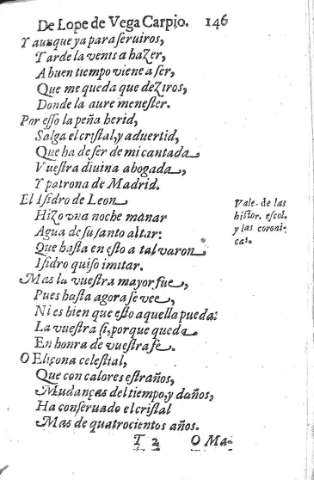 De Lope de Vega Carpio. 146
Y aunque ya para seruiros,
Tarde la venis a hazer,
A buen tiempo viene a ser,
Que me queda que deziros,
Donde la aure menester.
Por esso la peña herid,
Salga el cristal, y aduertid,
Que ha de ser de mi cantada
Vuestra diuina abogada,
Y patrona de Madrid.
El Isidro de Leon
Hizo vna noche manar
Agua de su santo altar:
Que hasta en esto a tal varon
Isidro quiso imitar.
Vale. de las
histor. escol.
y las coroni-
cas.
Mas la vuestra mayor fue,
Pues hasta agora se vee,
Ni es bien que esto aquella pueda:
La vuestra si, porque queda
En honra de vuestra fe.
O Eliçona celestial,
Que con calores estraños,
Mudanças del tiempo, y daños,
Ha conseruado el cristal
Mas de quatrocientos años.
T 2 O Ma-